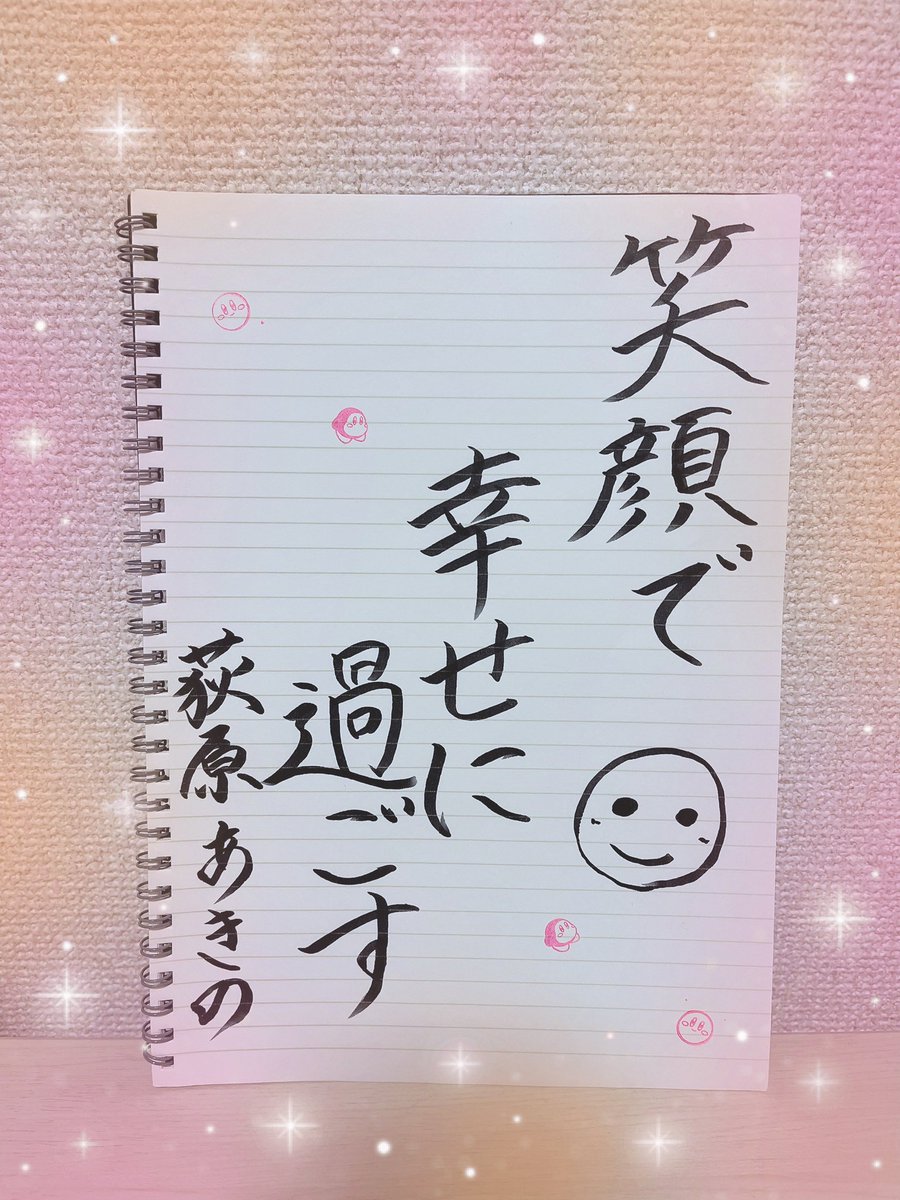 笑顔で
幸せに
過ごす
荻原あきの